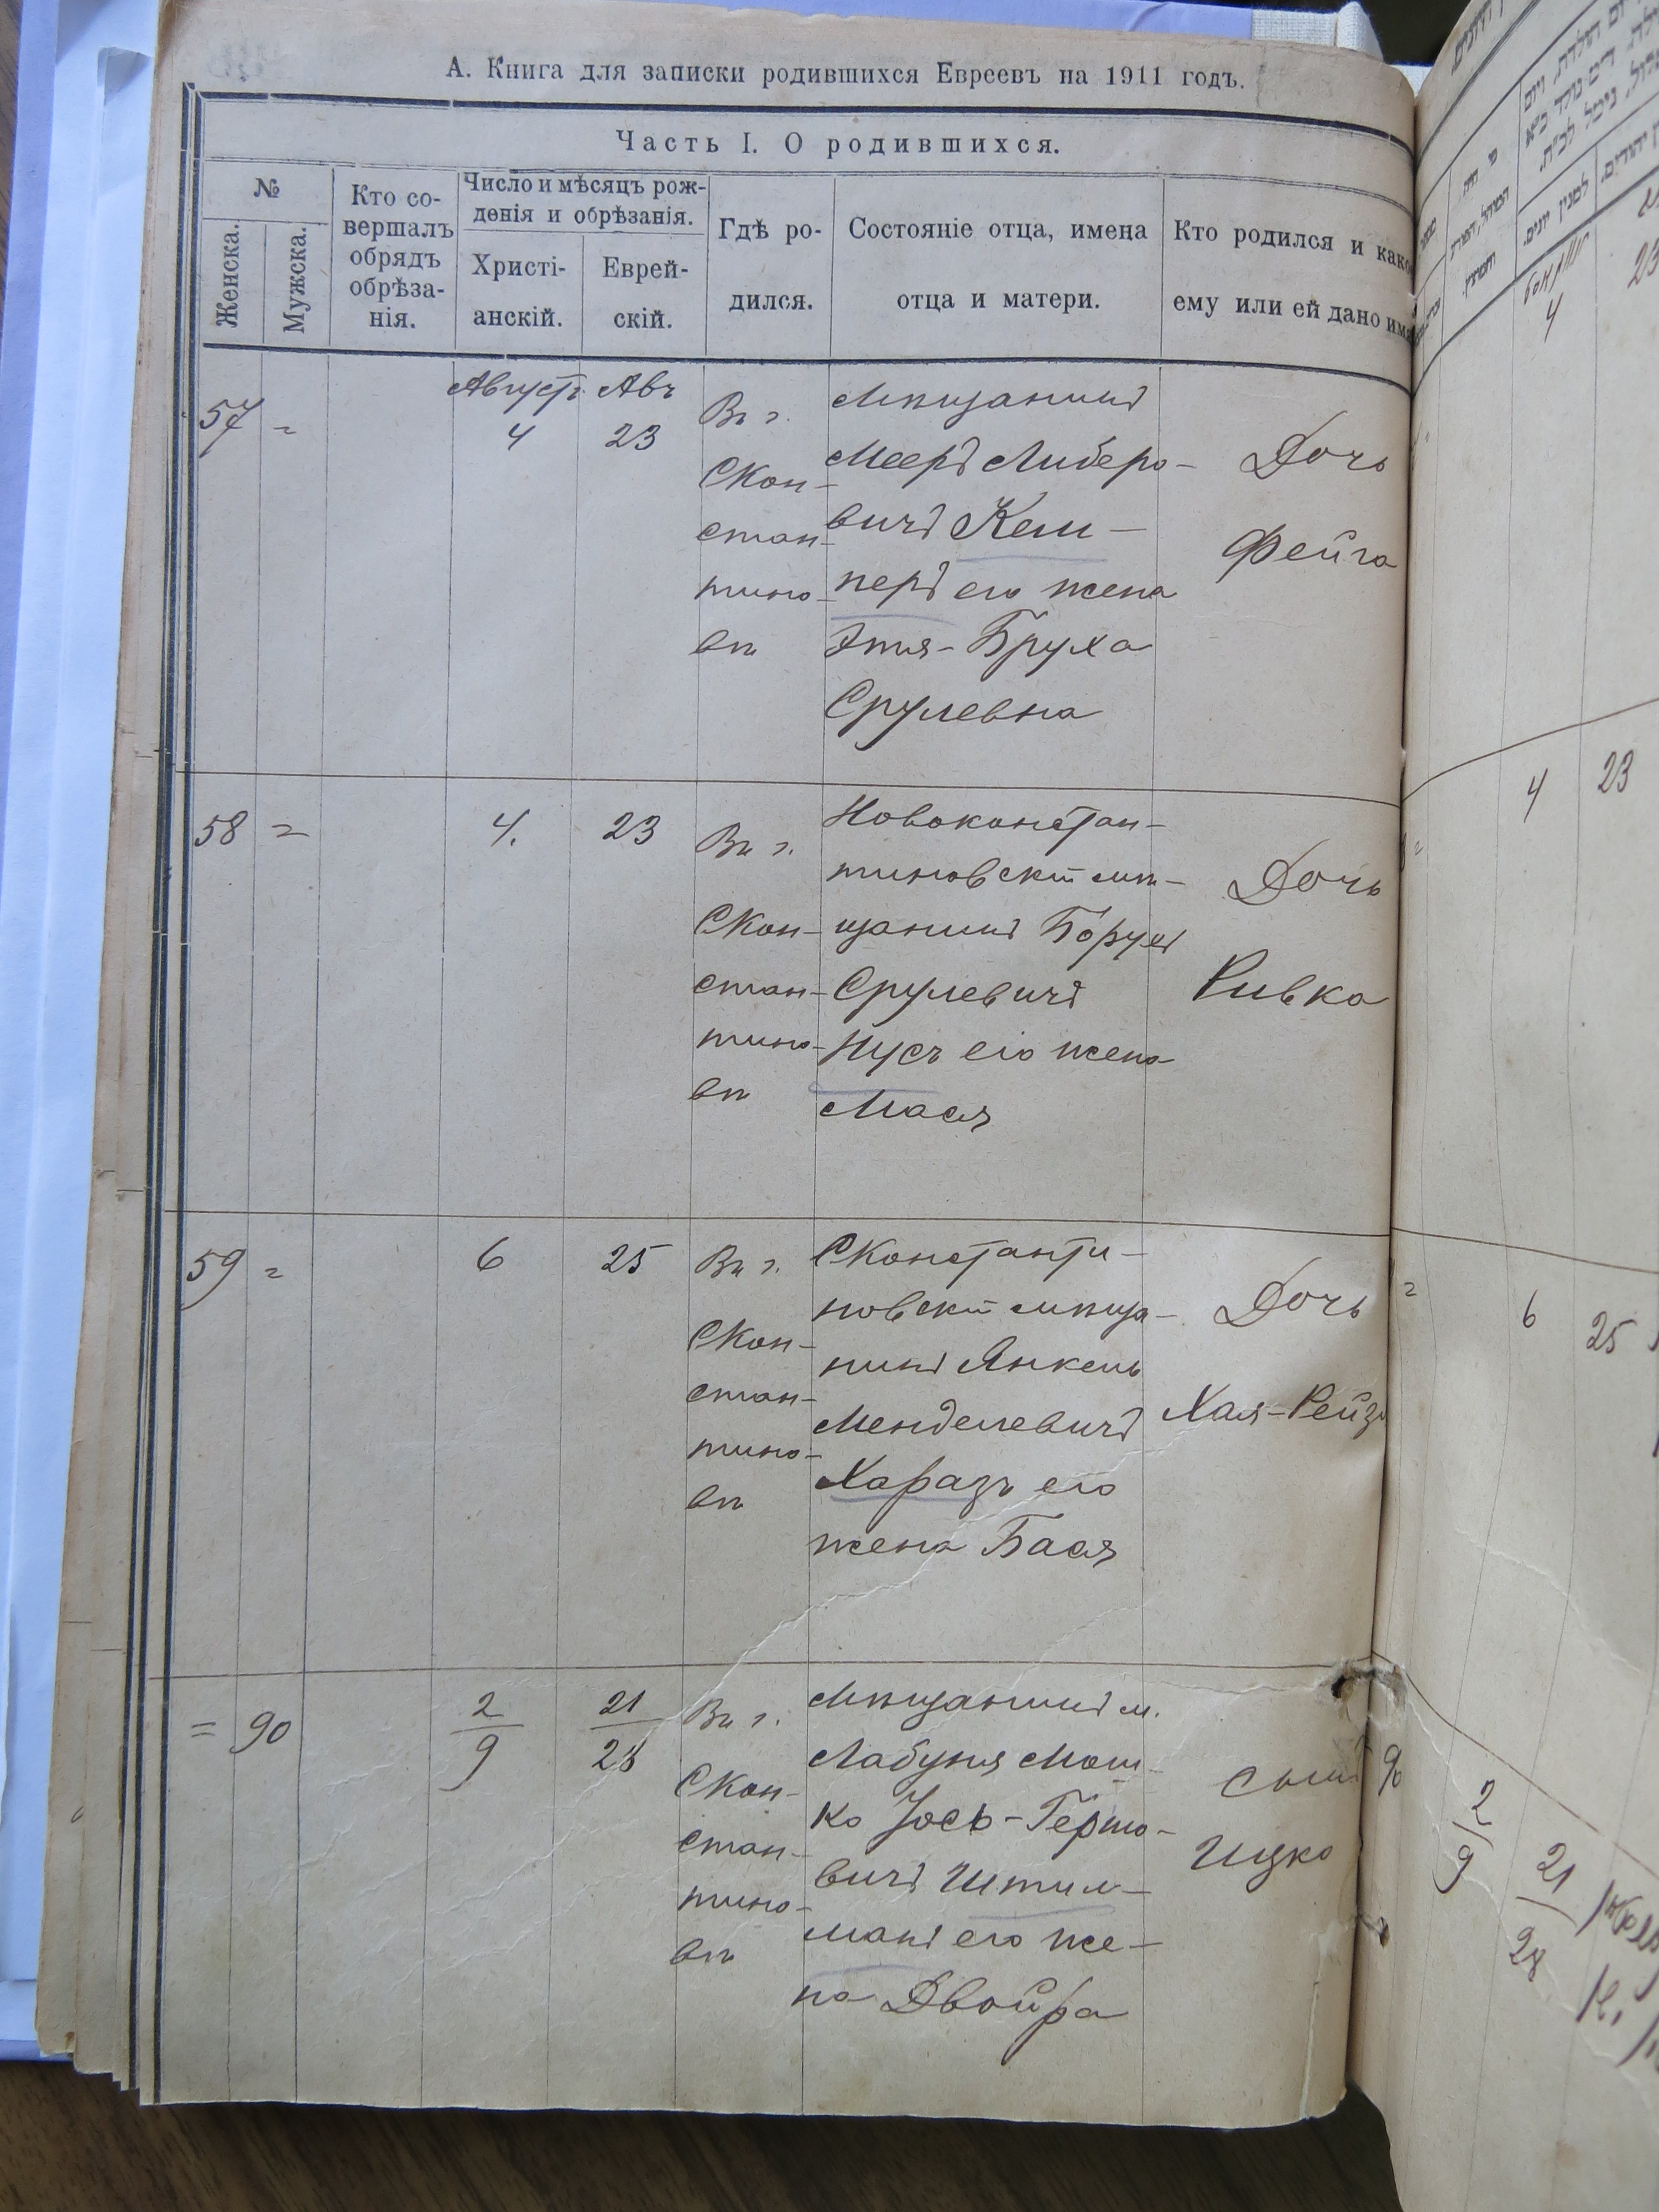 А. Книга для записки родившихся Евреевъ на 1911 годъ.
Часть I. О родившихся.
№
Женска.
Мужска.
Кто со-
вершалъ
обрядъ
обрѣза-
нія.
Число и мѣсяцъ рож-
денія и обрѣзанія.
Христі-
анскій.
Еврей-
скій.
Гдѣ ро-
дился.
Состояніе отца, имена
отца и матери.
Кто родился и како
ему или ей дано имя
57 =
Августъ
4
Авъ
23
Въ г.
СКон-
стан-
тино-
вѣ
Мѣщанинъ
Мееръ Либеро-
вичъ Кем-
перъ его жена
Этя-Бруха
Срулевна
Дочь
Фейга
58 =
4.
23
Въ г.
СКон-
стан-
тино-
вѣ
Новоконстан-
тиновскій мѣ-
щанинъ Борух
Срулевичъ
Нусъ его жена
Мася
Дочь
Ривка
59 =
6
25
Въ г.
СКон-
стан-
тино-
вѣ
СКонстанти-
новскій мѣща-
нинъ Янкель
Менделевичъ
Харазъ его
жена Бася
Дочь
Хая-Рейз
= 90
2
9
21
28
Въ г.
СКон-
стан-
тино-
вѣ
Мѣщанинъ м.
Лабуня Мош-
ко Іось-Гершо-
вичъ Штил-
манъ его же-
на Двойра
Сынъ
Ицко
4
23
4 23
6 25
90
2
9
21
28